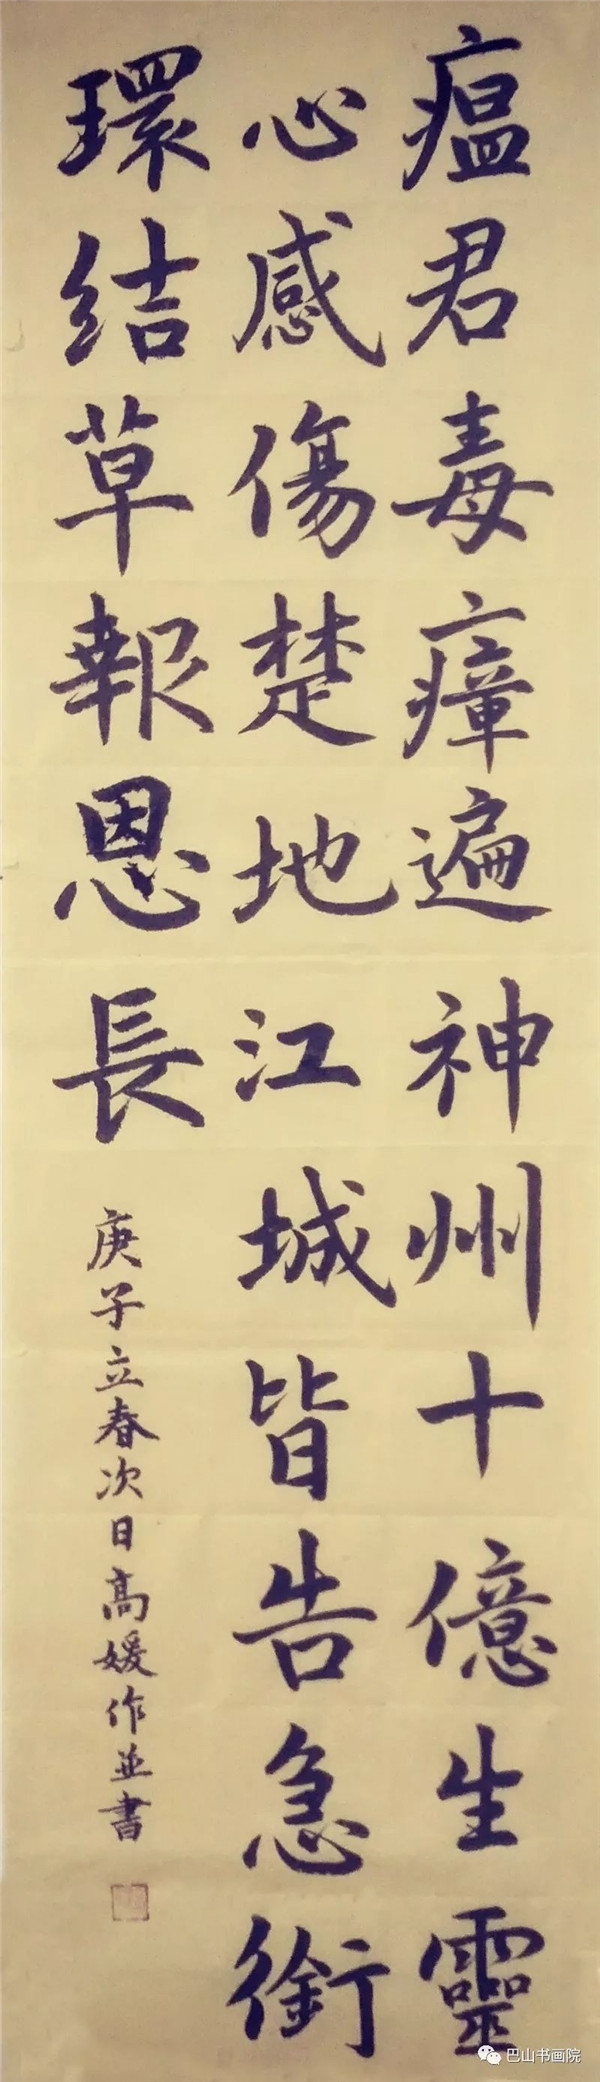 瘟君毒瘴遍神州十億生靈
心感傷楚地江城皆告急銜
環结草報恩長
庚子立春次日高媛作並書
巴山书画院